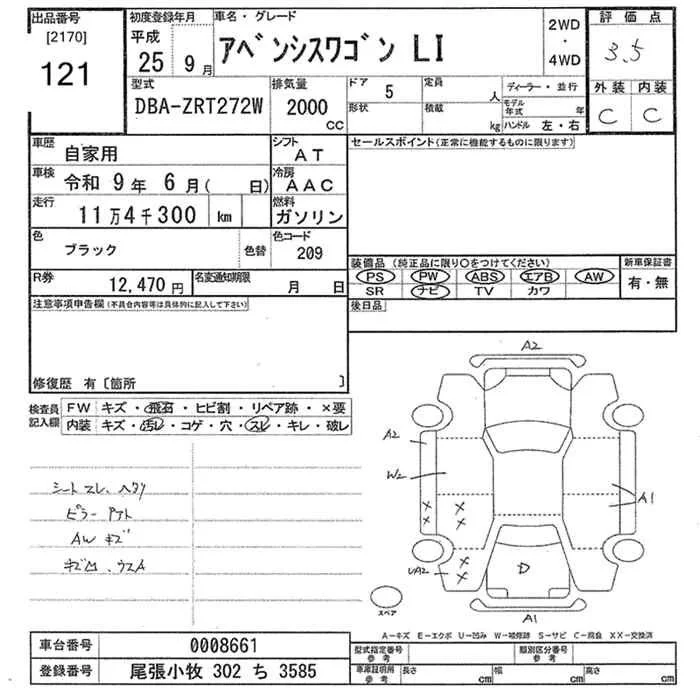 出品番号
[2170]
121
初度登録年月
平成
25 9月
車名・グレード
アベンシスワゴン LI
2WD
・
4WD
評価点
3.5
外装 内装
C C
型式
DBA-ZRT272W
排気量
2000
CC
ドア 5
定員 人
形状
積載 kg
ディーラー・並行
モデル年式 年
ハンドル 左・右
車歴 自家用
シフト AT
セールスポイント(正常に機能するものに限ります)
車検 令和 9年 6月( 日)
冷房 AAC
走行 11万4千300 km
燃料 ガソリン
色 ブラック 色替
色コード 209
装備品(純正品に限り○をつけてください)
新車保証書
PS PW ABS エアB AW
SR ナビ TV カワ
有・無
R券 12,470円
名変通知期限 月 日
後日品
注意事項申告欄(不具合内容等は具体的に記入して下さい)
修復歴 有〔箇所 〕
検査員記入欄
FW キズ・飛石・ヒビ割・リペア跡・×要
内装 キズ・汚レ・コゲ・穴・スレ・キレ・破レ
シートスレ、ヘタリ
ピラーアト
AW キズ
キズ凹、ウスA
A2
A2
W2
A1
UA2
D
A1
スペア
A-キズ E-エクボ U-凹み W-補修跡 S-サビ C-腐食 XX-交換済
車台番号 0008661
型式指定番号 参考
類別区分番号 参考
登録番号 尾張小牧 302 ち 3585
車庫証明 参考
長さ cm
幅 cm
高さ cm